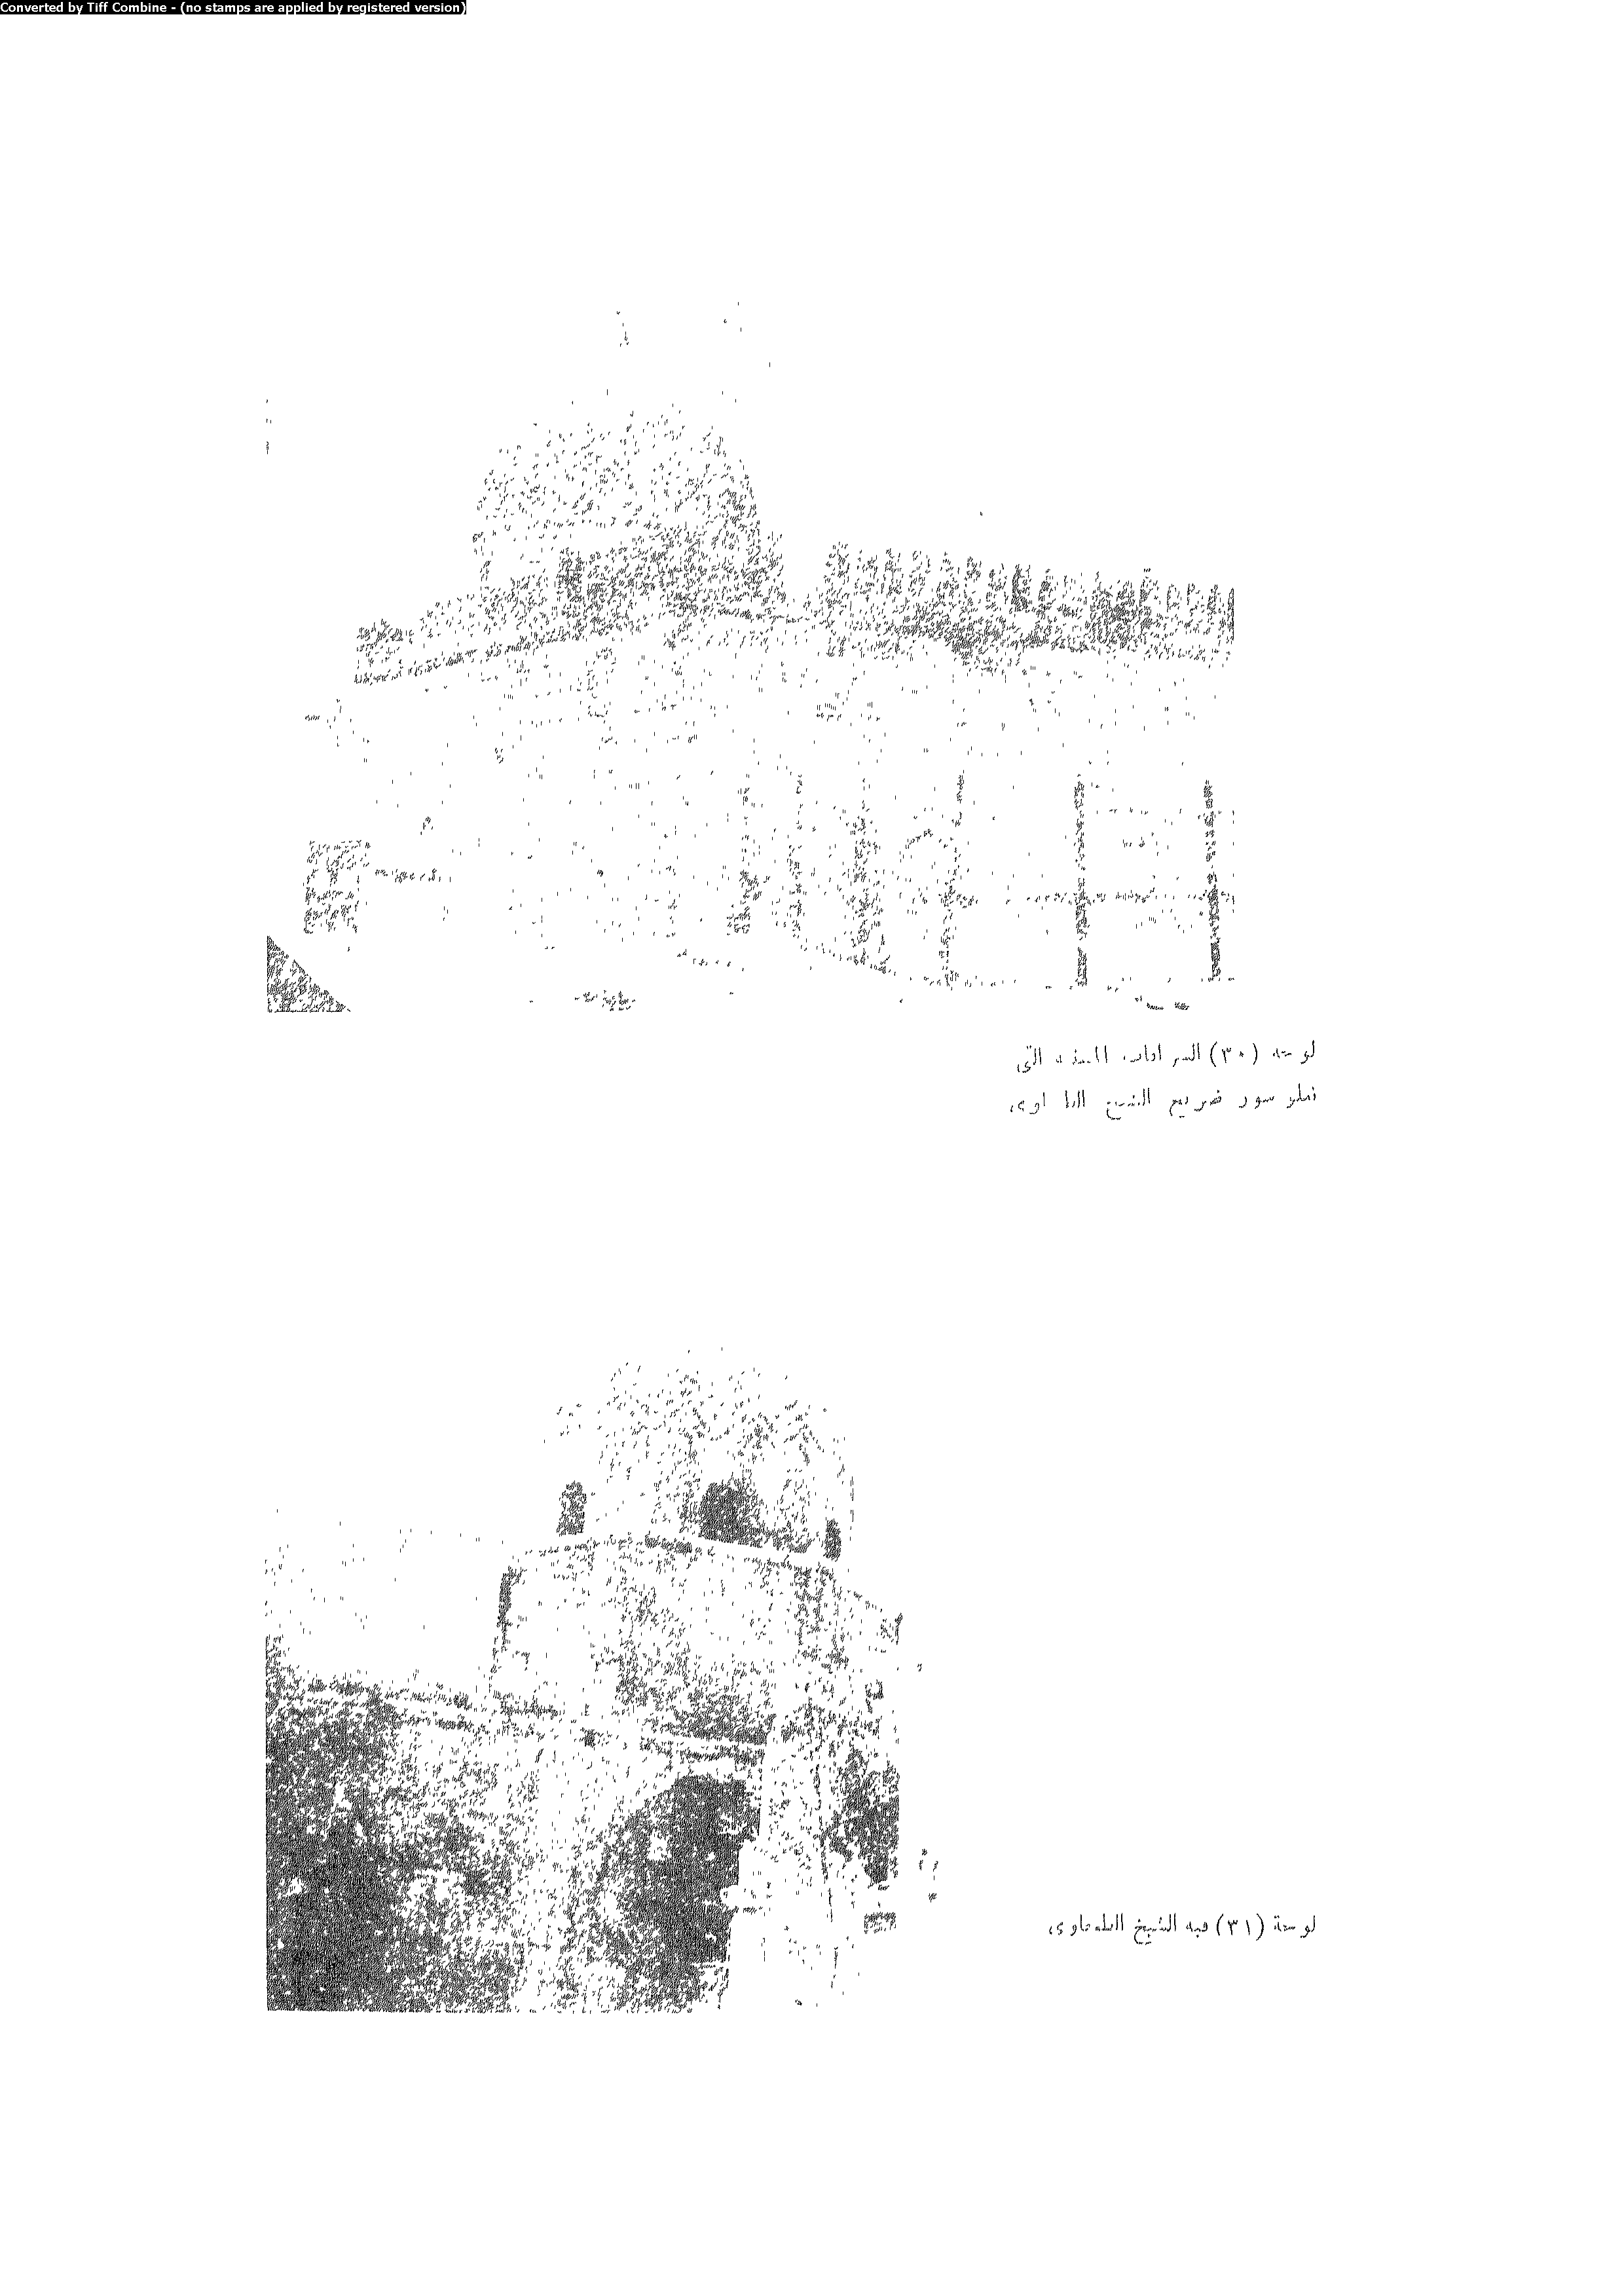 Converted by Tiff Combine - (no stamps are applied by registered version)
لوحة (٣٠) الشرافات المسننة التى
تعلو سور ضريح الشيخ
لوحة (٣١) قبة الشيخ الطحاوى